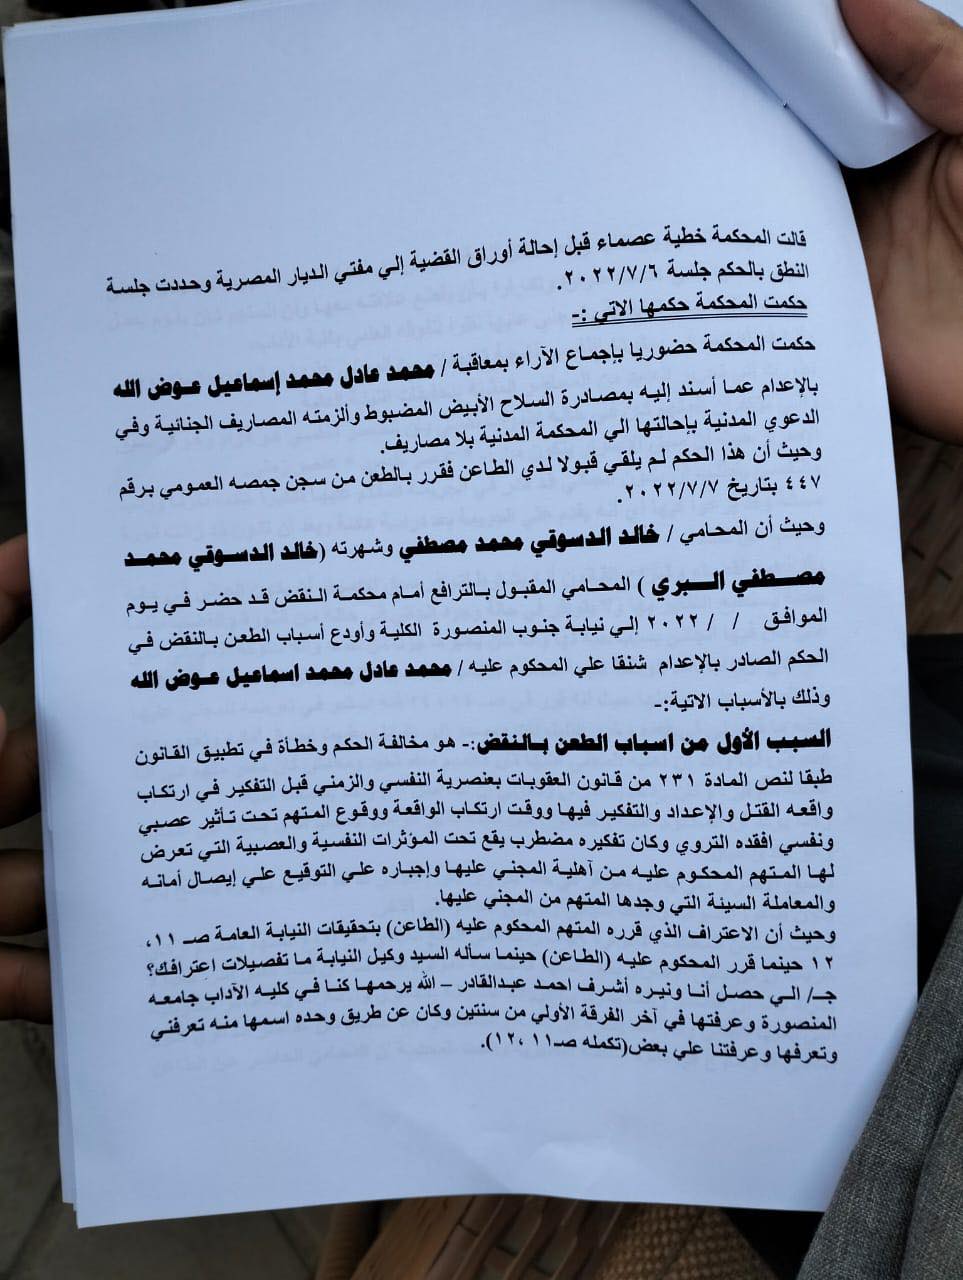 قالت المحكمة خطبة عصماء قبل إحالة أوراق القضية إلي مفتي الديار المصرية وحددت جلسة
النطق بالحكم جلسة ٢٠٢٢/٧/٦.
حكمت المحكمة حكمها الاتي :-
حكمت المحكمة حضوريا بإجماع الآراء بمعاقبة / محمد عادل محمد إسماعيل عوض الله
بالإعدام عما أسند إليه بمصادرة السلاح الأبيض المضبوط وألزمته المصاريف الجنائية وفي
الدعوي المدنية بإحالتها الي المحكمة المدنية بلا مصاريف.
وحيث أن هذا الحكم لم يلقي قبولا لدي الطاعن فقرر بالطعن من سجن جمصه العمومي برقم
٤٤٧ بتاريخ ٢٠٢٢/٧/٧.
وحيث أن المحامي / خالد الدسوقي محمد مصطفي وشهرته (خالد الدسوقي محمد
مصطفي البري ) المحامي المقبول بالترافع أمام محكمة النقض قد حضر في يوم
الموافق / / ٢٠٢٢ إلي نيابة جنوب المنصورة الكلية وأودع أسباب الطعن بالنقض في
الحكم الصادر بالإعدام شنقا علي المحكوم عليه / محمد عادل محمد اسماعيل عوض الله
وذلك بالأسباب الاتية:-
السبب الأول من اسباب الطعن بالنقض:- هو مخالفة الحكم وخطأة في تطبيق القانون
طبقا لنص المادة ٢٣١ من قانون العقوبات بعنصرية النفسي والزمني قبل التفكير في ارتكاب
واقعه القتل والإعداد والتفكير فيها ووقت ارتكاب الواقعة ووقوع المتهم تحت تأثير عصبي
ونفسي افقده التروي وكان تفكيره مضطرب يقع تحت المؤثرات النفسية والعصبية التي تعرض
لها المتهم المحكوم عليه من آهلية المجني عليها وإجباره علي التوقيع علي إيصال أمانه
والمعاملة السيئة التي وجدها المتهم من المجني عليها.
وحيث أن الاعتراف الذي قرره المتهم المحكوم عليه (الطاعن) بتحقيقات النيابة العامة صـ ١١،
١٢ حينما قرر المحكوم عليه (الطاعن) حينما سأله السيد وكيل النيابة ما تفصيلات اعترافك؟
جـ/ الي حصل أنا ونيره أشرف احمد عبدالقادر – الله يرحمها كنا في كليه الآداب جامعه
المنصورة وعرفتها في آخر الفرقة الأولي من سنتين وكان عن طريق وحده اسمها منه تعرفني
وتعرفها وعرفتنا علي بعض(تكمله صـ١١ ،١٢).